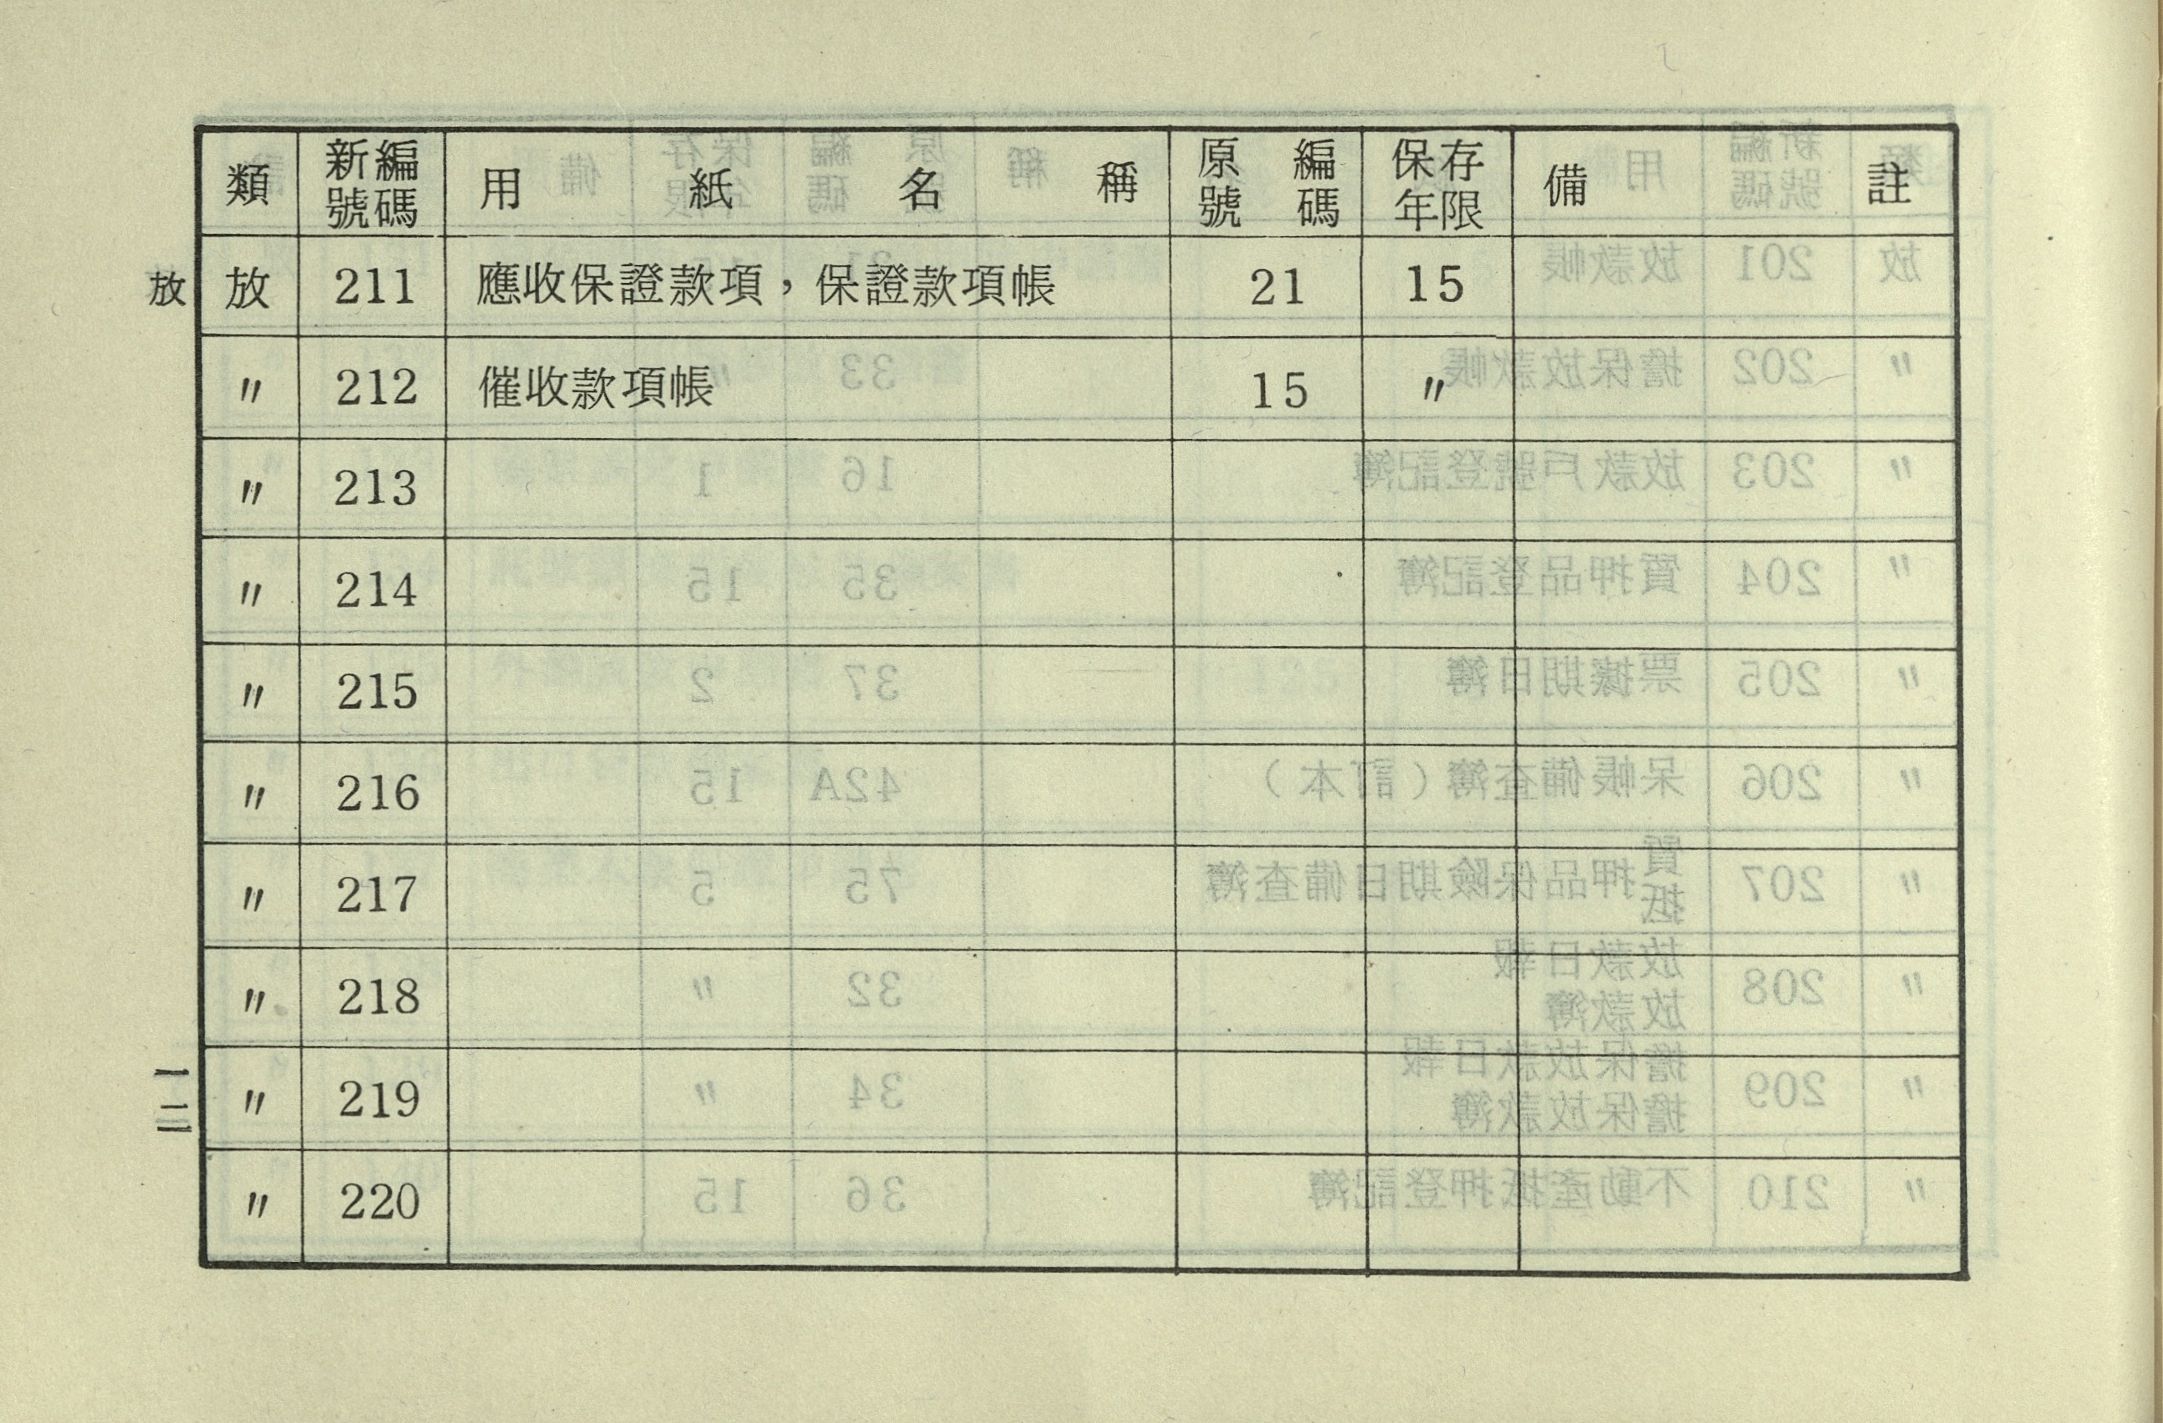 類 新編號碼 用紙名稱 原編號碼 保存年限 備註
放 放 211 應收保證款項，保證款項帳 21 15
〃 212 催收款項帳 15 〃
〃 213
〃 214
〃 215
〃 216
〃 217
〃 218
〃 219
〃 220
一二